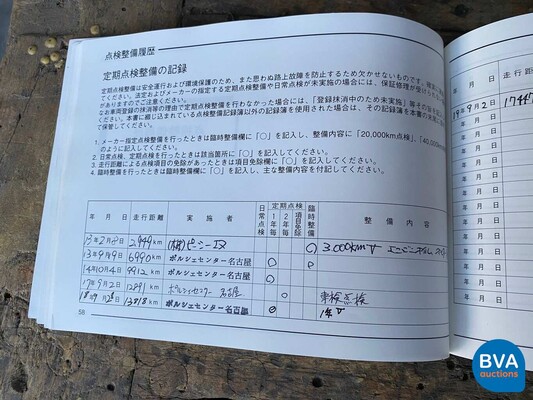 点検整備履歴
定期点検整備の記録
定期点検整備は安全運行および環境保護のため、また思わぬ路上故障を防止するため欠かせないものです。
てください。法定およびメーカーの指定する定期点検整備や日常点検が未実施の場合には、保証修理が受けられ
がありますのでご注意ください。
なお車両登録の抹消等の理由で定期点検整備を行わなかった場合には、「登録抹消中のため未実施」等その旨を
てください。本書に綴じ込まれている点検整備記録簿以外の記録簿を使用された場合は、その記録簿を本書の末
て保管してください。
1. メーカー指定点検整備を行ったときは臨時整備欄に「○」を記入し、整備内容に「20,000km点検」、「40,000
のように記入してください。
2. 日常点検、定期点検を行ったときは該当箇所に「○」を記入してください。
3. 走行距離による点検項目の免除があったときは項目免除欄に「○」を記入してください。
4. 臨時整備を行ったときは臨時整備欄に「○」を記入し、主な整備内容を付記してください。
年 月 日 走行距離 実施者 日常点検 定期点検 1年毎 2年毎 項目免除 臨時整備 整備内容
13年2月8日 2,949km (株) 3,000km
13年9月9日 6990km ポルシェセンター名古屋 ○ ○
14年10月4日 9912km ポルシェセンター名古屋 ○
17年9月2日 12891km ポルシェセンター名古屋 ○ 車検点検
18年9月2日 13818km ポルシェセンター名古屋 ○ 1年
58
年 月 日 走行距
19年9月2日 17447
年 月 日
年 月 日
年 月 日
年 月 日
年 月 日
年 月 日
年 月 日
年 月 日
年 月 日
年 月 日
BVA
auctions